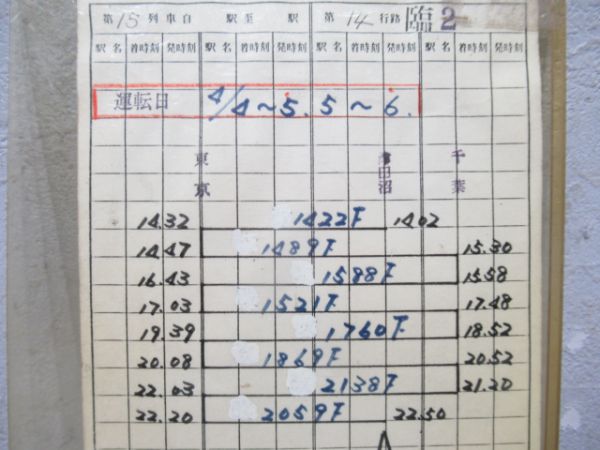 第 15 列車自 駅至 駅 第 14 行路 臨2
駅名 着時刻 発時刻 駅名 着時刻 発時刻 駅名 着時刻 発時刻 駅名 着時刻 発時刻
運転日 4/4〜5. 5〜6.
東京 津田沼 千葉
14.32 1422F 14.02
14.47 1489F 15.30
16.43 1588F 15.58
17.03 1521F 17.48
19.39 1760F 18.52
20.08 1869F 20.52
22.03 2138F 21.20
22.20 2059F 22.50